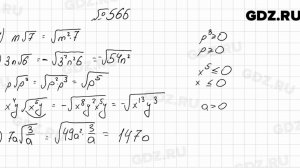 GDZ.RU
№566
) m√7 = √m²·7
) 3n√6 = -√3²n²6 = -√54n²
p√p³ = √p²p³ = √p⁵
x⁴y√x⁵y = -√x⁸y²x⁵y = -√x¹³y³
) 7a√3/a = √49a²·3/a = √147a
p³≥0
p≥0
x⁵≤0
x≤0
a>0
GDZ.RU